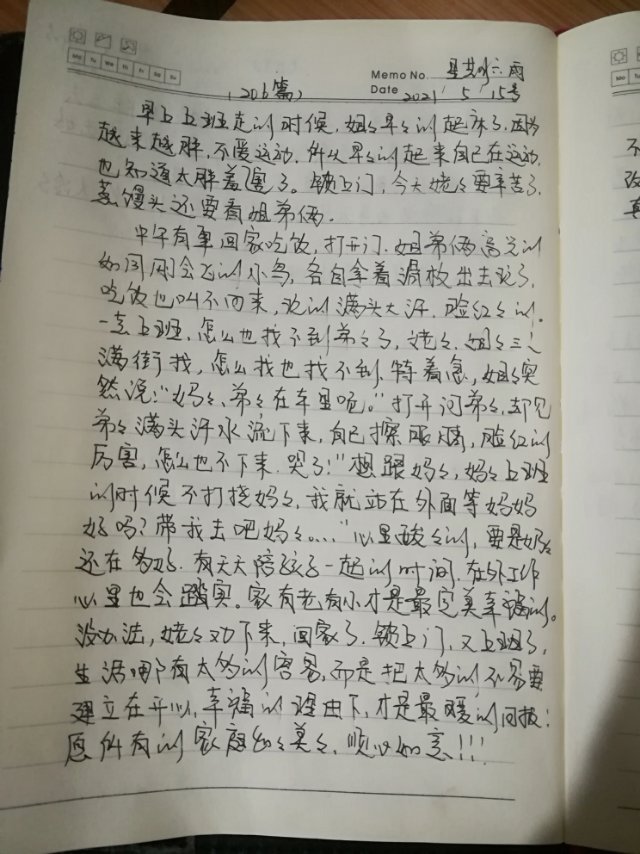 Mo Tu We Th Fr Sa Su
Memo No. 星期六 雨
(206篇) Date 2021 / 5 / 15号
早上上班走的时候，姐々早々的起床了，因为
越来越胖，不爱运动，所以早々的起来自己在运动，
也知道太胖羞了。锁上门，今天姥々要辛苦了，
蒸馒头还要看姐弟俩．
中午有事回家吃饭，打开门．姐弟俩高兴的
如同刚会飞的小鸟，各自拿着滑板出去玩了，
吃饭也叫不回来，玩的满头大汗．脸红々的。
一走上班，怎么也找不到弟々了，姥々．姐々三人
满街找，怎么找也找不到．特着急，姐々突
然说：“妈々、弟々在车里呢。”打开门弟々，却见
弟々满头汗水流下来，自己擦眼泪，脸红的
厉害，怎么也不下来．哭了！“想跟妈々，妈々上班
的时候不打挠妈々，我就站在外面等妈妈
好吗？带我去吧妈々....”心里酸々的，要是奶々
还在多好．有天天陪孩子一起的时间．在外工作
心里也会踏实。家有老有小才是最完美幸福的。
没办法，姥々劝下来，回家了．锁上门，又上班了，
生活哪有太多的容易，而是把太多的不易要
建立在开心，幸福的理由下，才是最暖的回报：
愿所有的家庭和々美々，顺心如意！！！